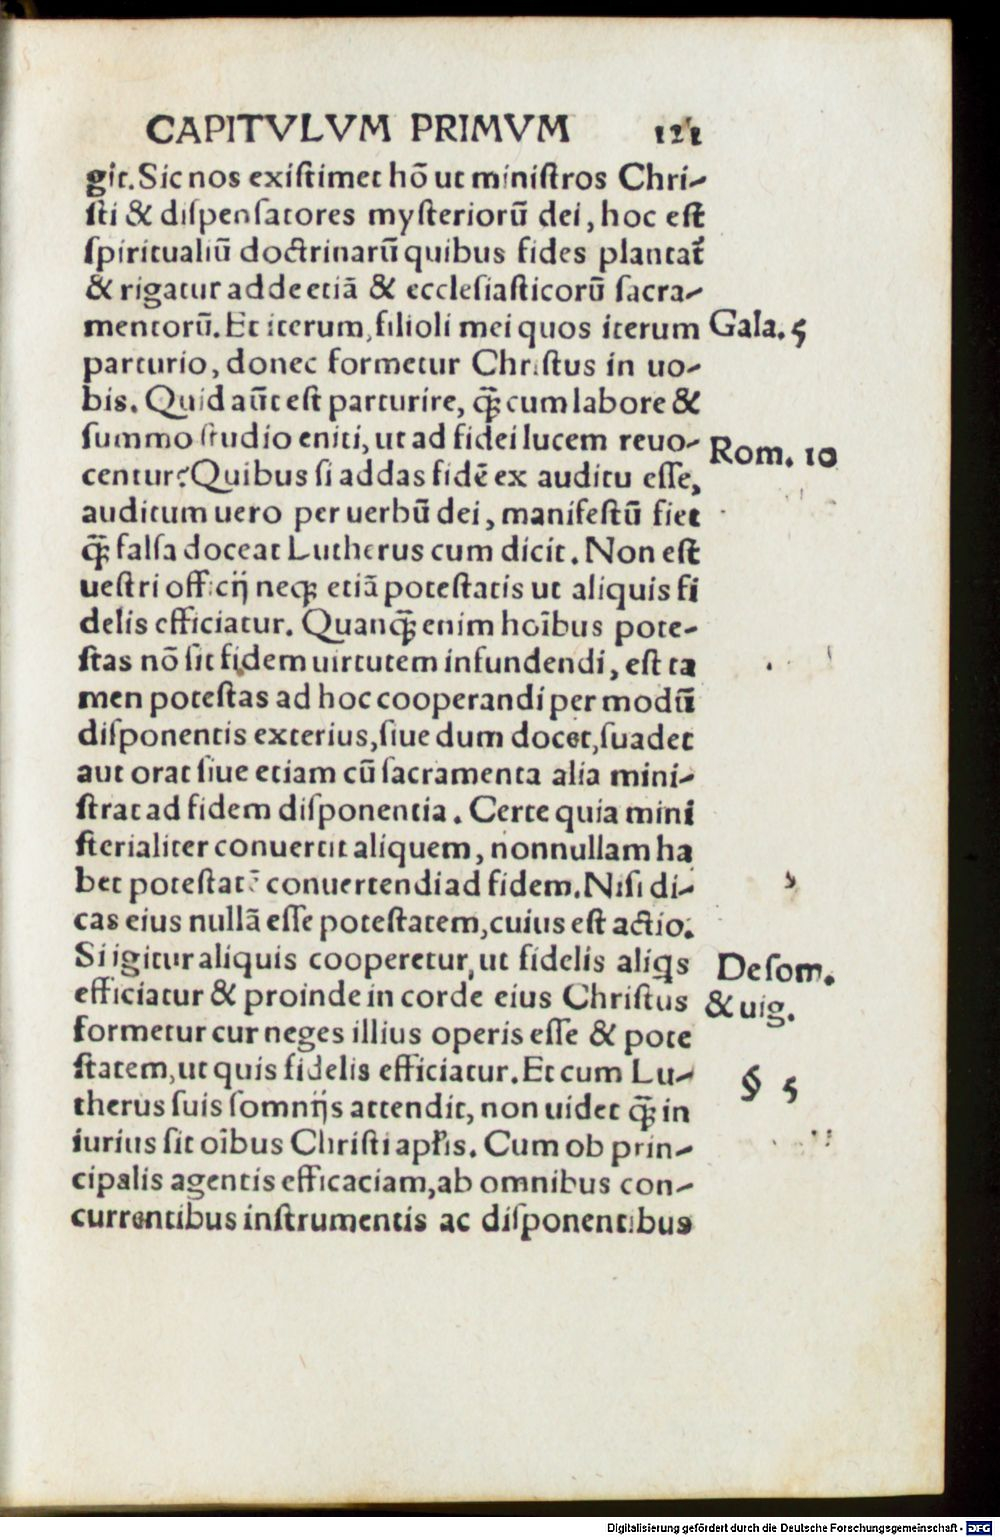 CAPITVLVM PRIMVM 121
git. Sic nos existimet hõ ut ministros Chri-
sti & dispensatores mysteriorũ dei, hoc est
spiritualiũ doctrinarũ quibus fides plantat᷑
& rigatur adde etiã & ecclesiasticorũ sacra-
mentorũ. Et iterum, filioli mei quos iterum
Gala. 5
parturio, donec formetur Christus in uo-
bis. Quid aũt est parturire, q̃ꝫ cum labore &
summo studio eniti, ut ad fidei lucem reuo-
Rom. 10
centur? Quibus si addas fidẽ ex auditu esse,
auditum uero per uerbũ dei, manifestũ fiet
q̃ꝫ falsa doceat Lutherus cum dicit. Non est
uestri officij neqꝫ etiã potestatis ut aliquis fi
delis efficiatur. Quanq̃ꝫ enim hoĩbus pote-
stas nõ sit fidem uirtutem infundendi, est ta
men potestas ad hoc cooperandi per modũ
disponentis exterius, siue dum docet, suadet
aut orat siue etiam cũ sacramenta alia mini-
strat ad fidem disponentia. Certe quia mini
sterialiter conuertit aliquem, nonnullam ha
bet potestatẽ conuertendi ad fidem. Nisi di-
cas eius nullã esse potestatem, cuius est actio.
Si igitur aliquis cooperetur, ut fidelis aliqs
De som.
efficiatur & proinde in corde eius Christus
& uig.
formetur cur neges illius operis esse & pote
statem, ut quis fidelis efficiatur. Et cum Lu-
§ 5
therus suis somnijs attendit, non uidet q̃ꝫ in
iurius sit oĩbus Christi apłis. Cum ob prin-
cipalis agentis efficaciam, ab omnibus con-
currentibus instrumentis ac disponentibus
Digitalisierung gefördert durch die Deutsche Forschungsgemeinschaft - DFG